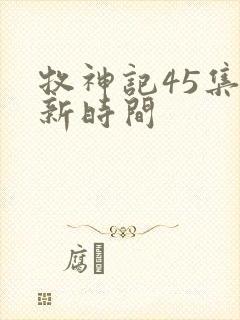 牧神記45集
新時間
腐